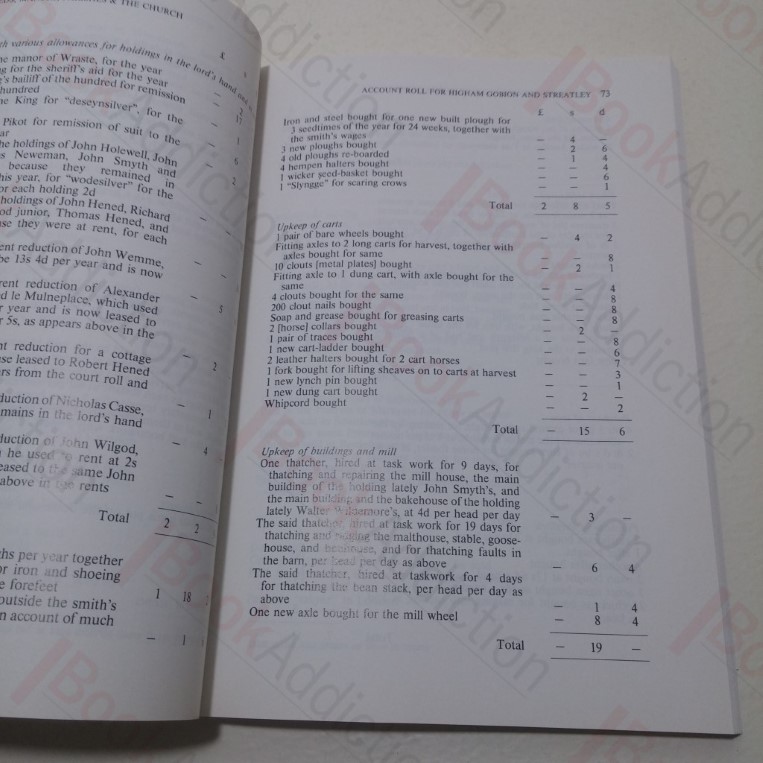 & THE CHURCH
various allowances for holdings in the lord's hand and
£ s
manor of Wraste, for the year
for the sheriff's aid for the year
bailiff of the hundred for remission
hundred
King for "deseynsilver", for the
Pikot for remission of suit to the
holdings of John Holewell, John
Neweman, John Smyth and
because they remained in
his year, for "wodesilver" for the
or each holding 2d
holdings of John Hened, Richard
junior, Thomas Hened, and
they were at rent, for each
rent reduction of John Wemme,
be 13s 4d per year and is now
rent reduction of Alexander
le Mulneplace, which used
year and is now leased to
5s, as appears above in the
reduction for a cottage
leased to Robert Hened
from the court roll and
reduction of Nicholas Casse,
remains in the lord's hand
reduction of John Wilgod,
he used to rent at 2s
leased to the same John
above in the rents
Total 2 2
per year together
or iron and shoeing
forefeet 1 18
outside the smith's
account of much
– 1
ACCOUNT ROLL FOR HIGHAM GOBION AND STREATLEY 73
£ s d
Iron and steel bought for one new built plough for
3 seedtimes of the year for 24 weeks, together with
the smith's wages – 4 –
3 new ploughs bought – 2 6
4 old ploughs re-boarded – 1 4
4 hempen halters bought – – 4
1 wicker seed-basket bought – – 6
1 "Slyngge" for scaring crows – – 1
Total 2 8 5
Upkeep of carts
1 pair of bare wheels bought – 4 2
Fitting axles to 2 long carts for harvest, together with
axles bought for same – – 8
10 clouts [metal plates] bought – 2 1
Fitting axle to 1 dung cart, with axle bought for the
same – – 4
4 clouts bought for the same – – 8
200 clout nails bought – – 8
Soap and grease bought for greasing carts – – 8
2 [horse] collars bought – 2 –
1 pair of traces bought – – 8
1 new cart-ladder bought – – 6
2 leather halters bought for 2 cart horses – – 7
1 fork bought for lifting sheaves on to carts at harvest – – 3
1 new lynch pin bought – – 1
1 new dung cart bought – 2 –
Whipcord bought – – 2
Total – 15 6
Upkeep of buildings and mill
One thatcher, hired at task work for 9 days, for
thatching and repairing the mill house, the main
building of the holding lately John Smyth's, and
the main building and the bakehouse of the holding
lately Walter at 4d per head per day – 3 –
The said thatcher, hired at task work for 19 days for
thatching and the malthouse, stable, goose-
house, and henhouse, and for thatching faults in
the barn, per head per day as above – 6 4
The said thatcher, hired at taskwork for 4 days
for thatching the bean stack, per head per day as
above – 1 4
One new axle bought for the mill wheel – 8 4
Total – 19 –
BookAddiction